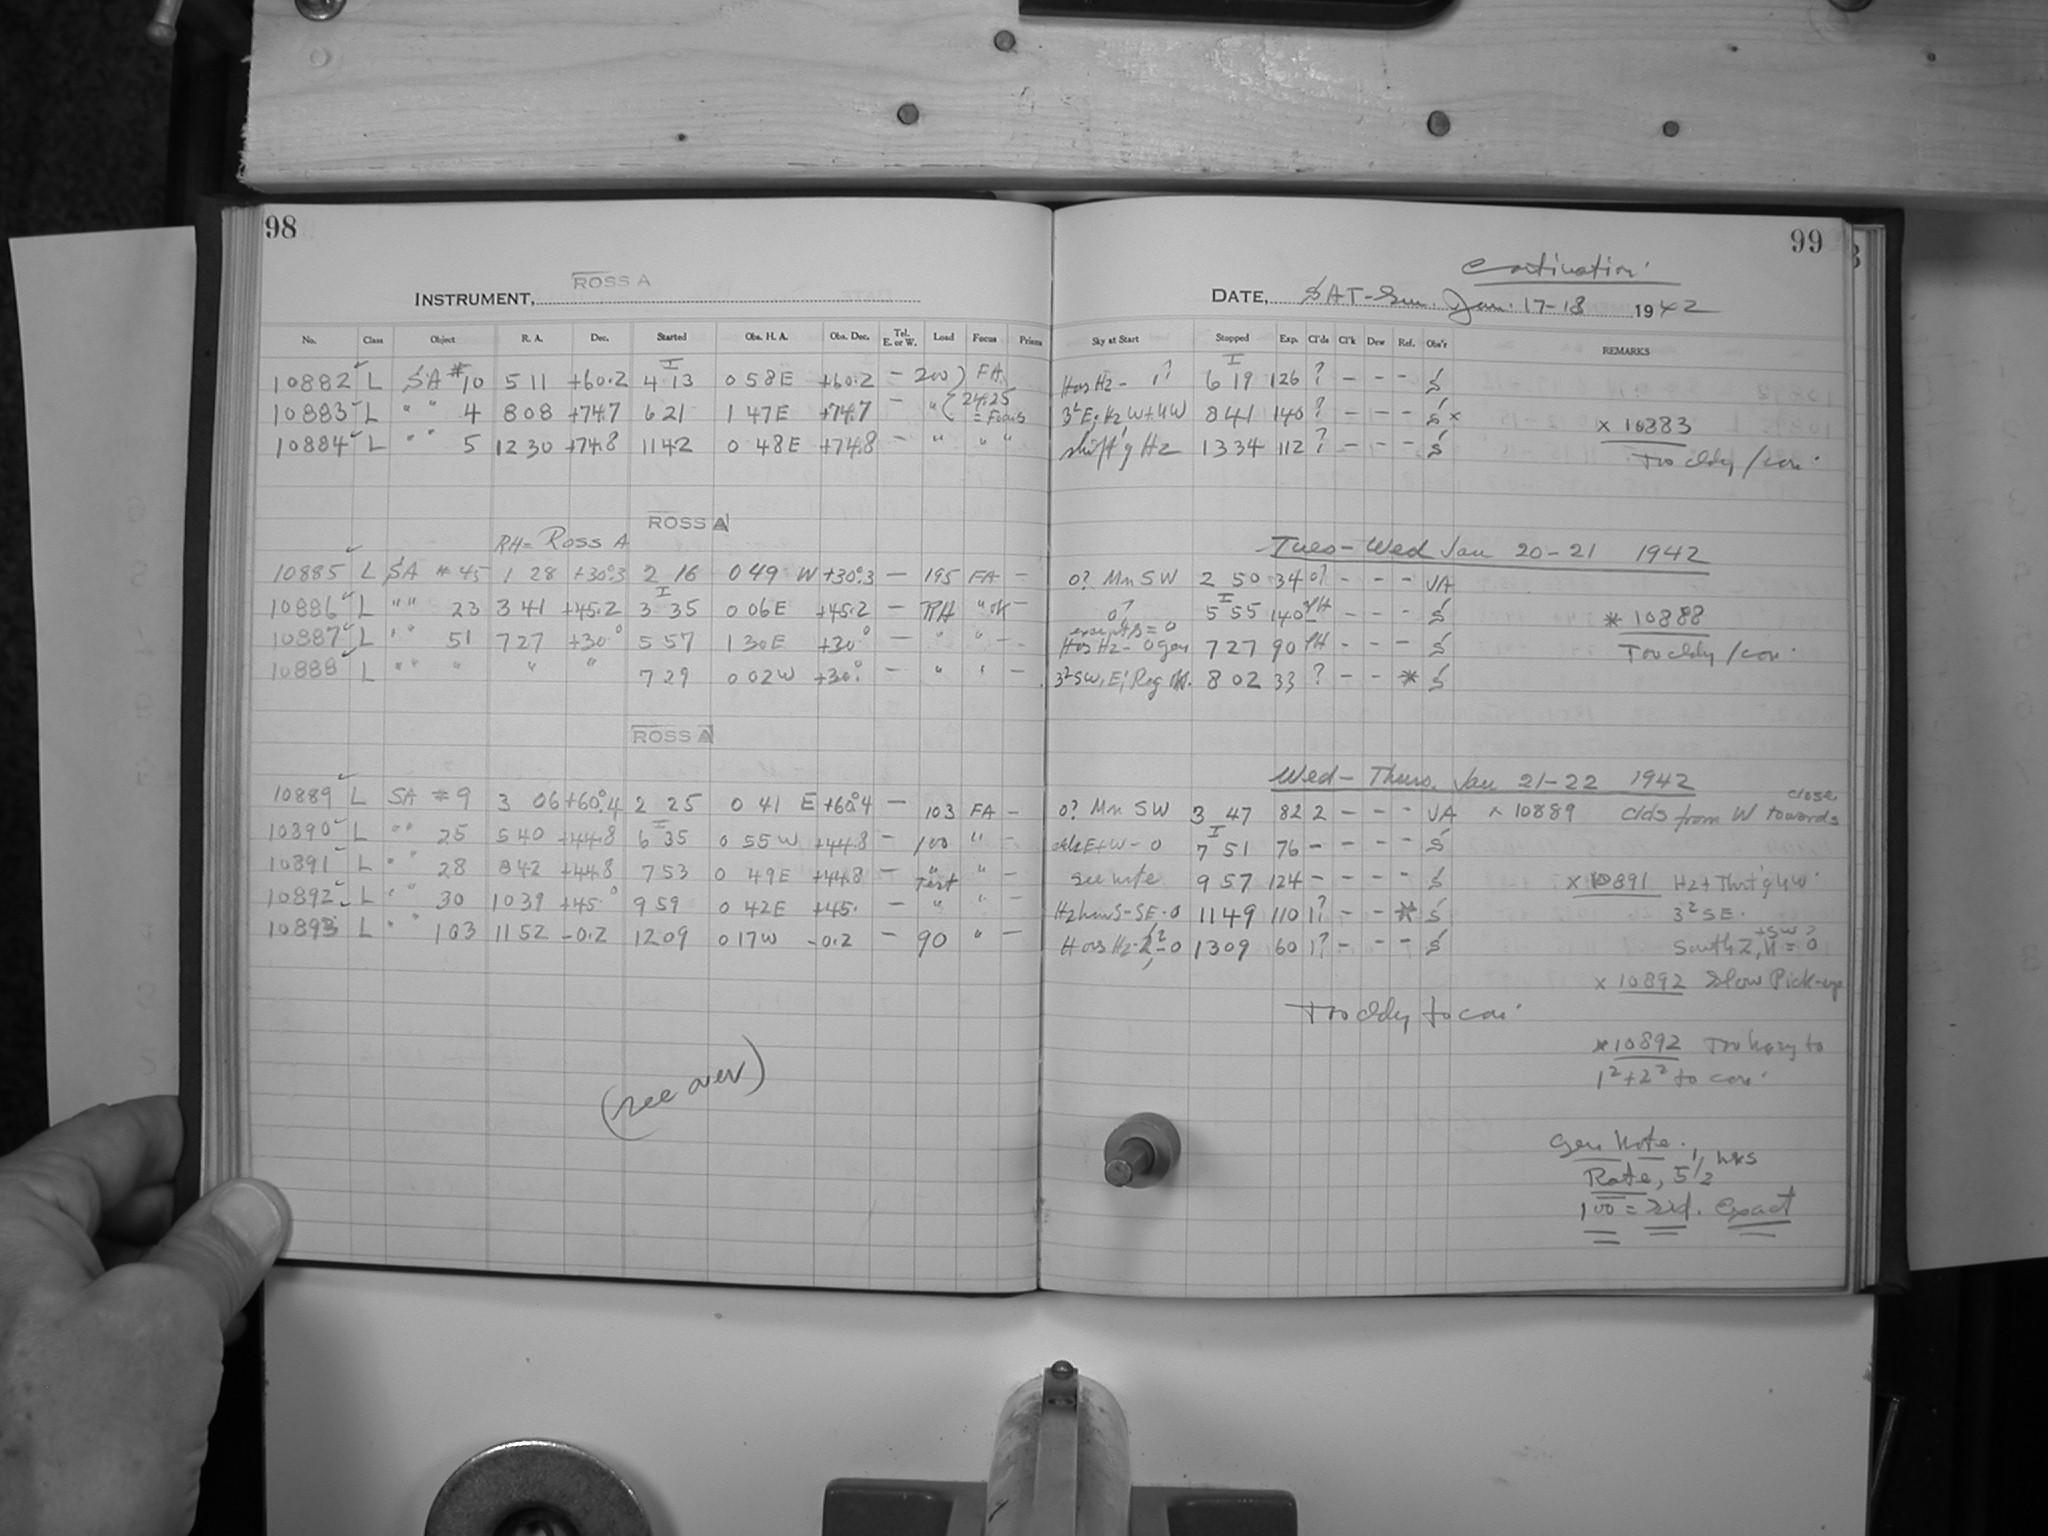 98
ROSS A
INSTRUMENT,
No. Class Object R. A. Dec. Started Obs. H. A. Obs. Dec. Tel. E. or W. Load Focus Prisms
10882 L SA #10 5 11 +60.2 4 13 0 58E +60.2 — 200 FA
10883 L " " 4 8 08 +74.7 6 21 1 47E +74.7 — " 24.25 = Focus
10884 L " " 5 12 30 +74.8 11 42 0 48E +74.8 — " " "
ROSS A
RH= Ross A
10885 L SA # 45 1 28 +30°.3 2 16 0 49 W +30°.3 — 195 FA —
10886 L " " 23 3 41 +45.2 3 35 0 06E +45.2 — RH " OK —
10887 L " " 51 7 27 +30° 5 57 1 30E +30° — " " —
10888 L " " " " " 7 29 0 02W +30° — " " —
ROSS A
10889 L SA # 9 3 06 +60°.4 2 25 0 41 E +60°.4 — 103 FA —
10890 L " " 25 5 40 +44.8 6 35 0 55W +44.8 — 100 " —
10891 L " " 28 8 42 +44.8 7 53 0 49E +44.8 — " " —
Test
10892 L " " 30 10 39 +45.° 9 59 0 42E +45. — " " —
10893 L " " 103 11 52 -0.2 12 09 0 17W -0.2 — 90 " —
(see over)
99
Continuation
DATE, SAT-Sun. Jan. 17-18 1942
Sky at Start Stopped Exp. Cl'ds Cl'k Dew Ref. Obs'r REMARKS
Hos Hz - 1? 6 19 126 ? — — — S
3²E; Hz W+4W 8 41 140 ? — — — S x
x 10883
shift'g Hz 13 34 112 ? — — — S
Too cldy / con.
Tues - Wed Jan 20-21 1942
0? Mn SW 2 50 34 0? — — — VA
0? 5 55 140 — — — S
* 10888
except S = 0
Hos Hz - 0 gen 7 27 90 — — — S
Too cldy / con.
3²SW, E; 8 02 33 ? — — * S
Wed - Thurs. Jan 21-22 1942
close
0? Mn SW 3 47 82 2 — — — VA x 10889 clds from W towards
E+W - 0 7 51 76 — — — — S
see note 9 57 124 — — — — S x 10891 Hz + Thrt'g 4W
Hz low S-SE-0 11 49 110 1? — — * S 3² SE.
+SW?
Hos Hz - 0 13 09 60 1? — — — S South Z, N = 0
x 10892 Slow Pick-up
Too cldy to con.
* 10892 Too hazy to
1²+2² to con.
Gen Note.
Rate, 5 1/2 hrs
100 = Exact